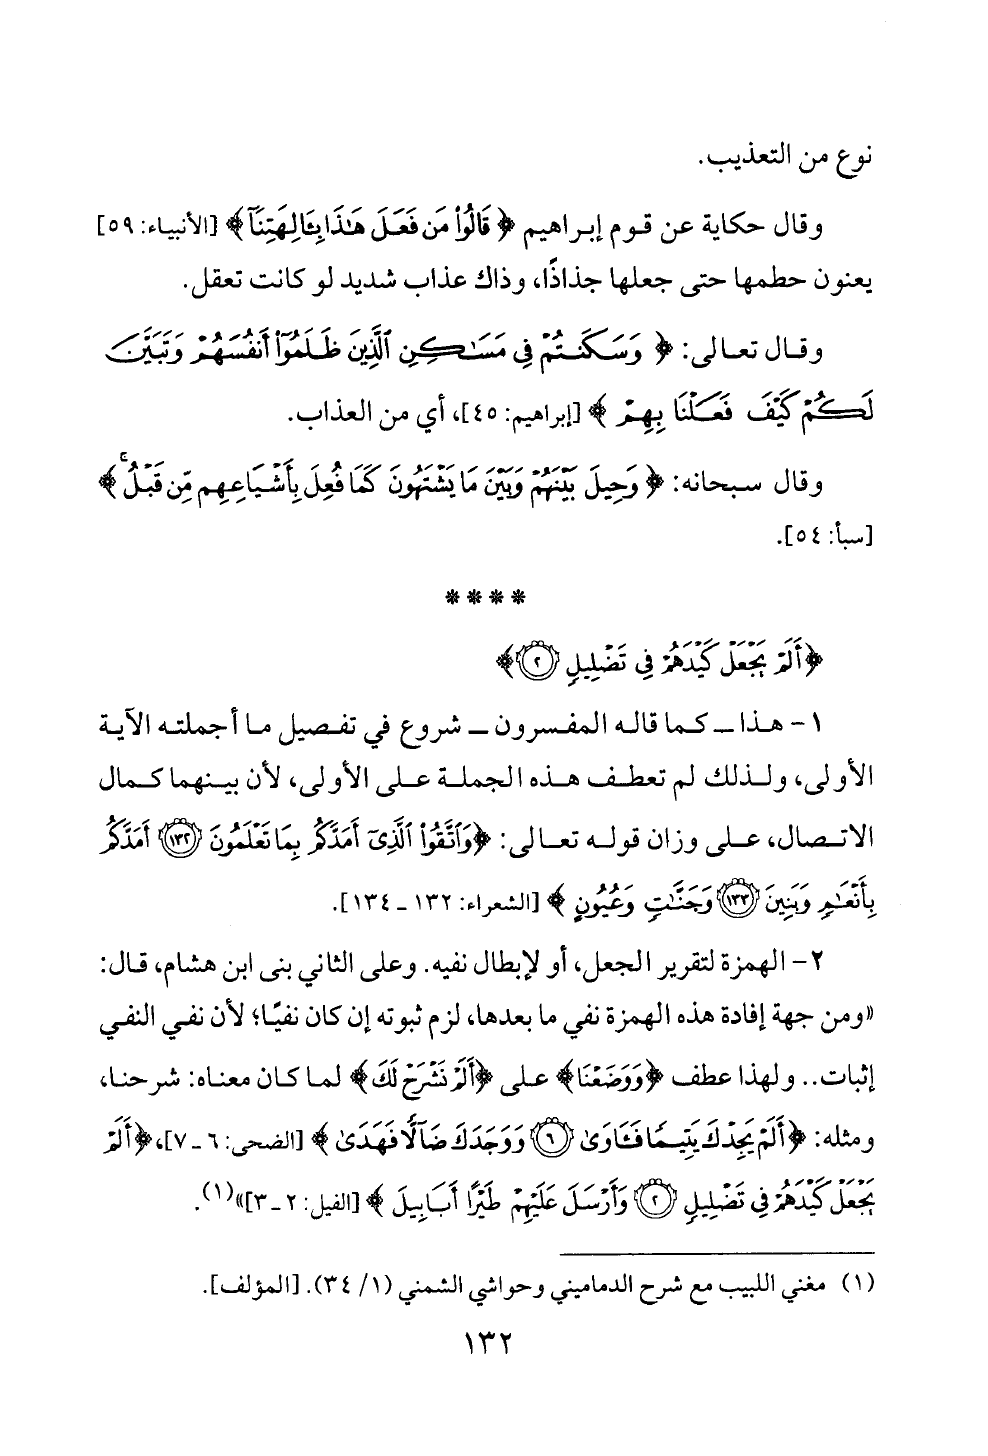 نوع من التعذيب.
وقال حكاية عن قوم إبراهيم ﴿ قَالُوا۟ مَن فَعَلَ هَٰذَا بِـَٔالِهَتِنَآ ﴾ [الأنبياء: ٥٩]
يعنون حطمها حتى جعلها جذاذًا، وذاك عذاب شديد لو كانت تعقل.
وقال تعالى: ﴿ وَسَكَنتُمْ فِي مَسَٰكِنِ ٱلَّذِينَ ظَلَمُوٓا۟ أَنفُسَهُمْ وَتَبَيَّنَ
لَكُمْ كَيْفَ فَعَلْنَا بِهِمْ ﴾ [إبراهيم: ٤٥]، أي من العذاب.
وقال سبحانه: ﴿ وَحِيلَ بَيْنَهُمْ وَبَيْنَ مَا يَشْتَهُونَ كَمَا فُعِلَ بِأَشْيَاعِهِم مِّن قَبْلُ ۚ ﴾
[سبأ: ٥٤].
****
﴿أَلَمْ يَجْعَلْ كَيْدَهُمْ فِي تَضْلِيلٍ ٢﴾
١- هذا ــ كما قاله المفسرون ــ شروع في تفصيل ما أجملته الآية
الأولى، ولذلك لم تعطف هذه الجملة على الأولى، لأن بينهما كمال
الاتصال، على وزان قوله تعالى: ﴿وَٱتَّقُوا۟ ٱلَّذِيٓ أَمَدَّكُم بِمَا تَعْلَمُونَ ١٣٢ أَمَدَّكُم
بِأَنْعَٰمٍ وَبَنِينَ ١٣٣ وَجَنَّٰتٍ وَعُيُونٍ ﴾ [الشعراء: ١٣٢ ـ ١٣٤].
٢- الهمزة لتقرير الجعل، أو لإبطال نفيه. وعلى الثاني بنى ابن هشام، قال:
«ومن جهة إفادة هذه الهمزة نفي ما بعدها، لزم ثبوته إن كان نفيًا؛ لأن نفي النفي
إثبات.. ولهذا عطف ﴿وَوَضَعْنَا﴾ على ﴿أَلَمْ نَشْرَحْ لَكَ﴾ لما كان معناه: شرحنا،
ومثله: ﴿ أَلَمْ يَجِدْكَ يَتِيمًا فَـَٔاوَىٰ ٦ وَوَجَدَكَ ضَآلًّا فَهَدَىٰ ﴾ [الضحى: ٦ ـ ٧]، ﴿أَلَمْ
يَجْعَلْ كَيْدَهُمْ فِي تَضْلِيلٍ ٢ وَأَرْسَلَ عَلَيْهِمْ طَيْرًا أَبَابِيلَ ﴾ [الفيل: ٢ ـ ٣]»(١).
(١) مغني اللبيب مع شرح الدماميني وحواشي الشمني (١/ ٣٤). [المؤلف].
١٣٢